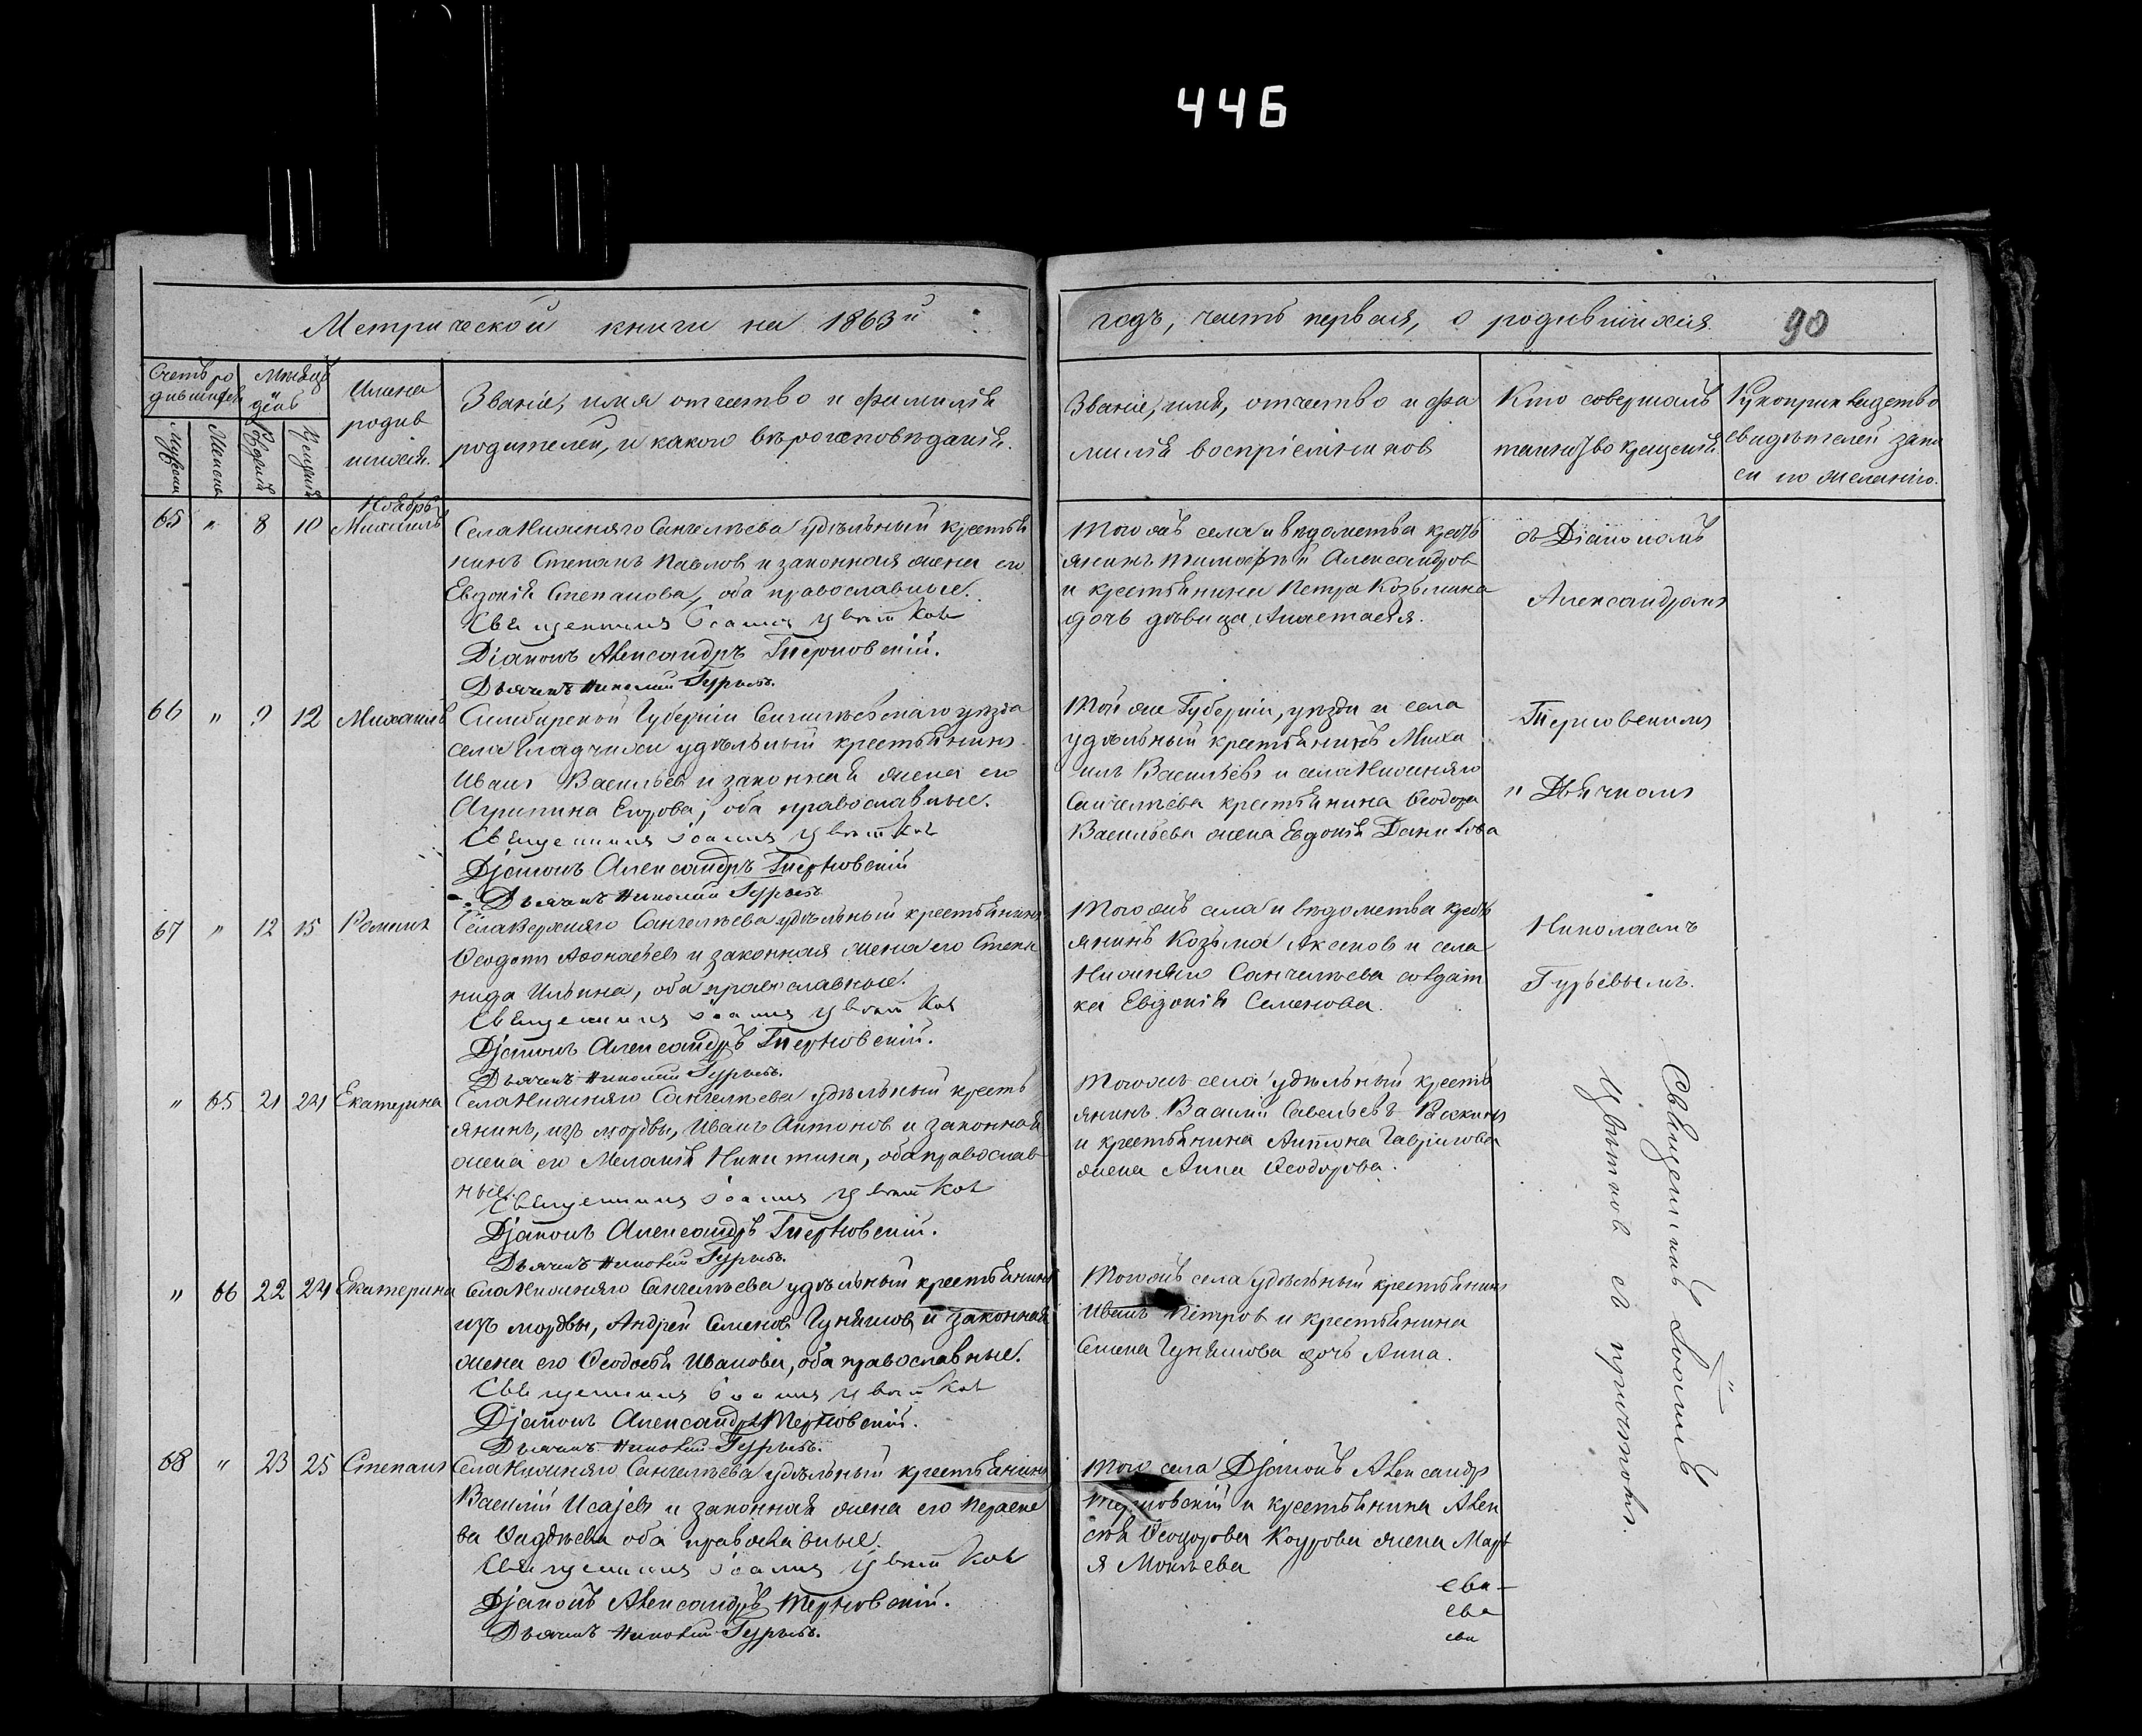 446
Метрической книги на 1863й
годъ, часть первая, о родившихся.
90
Счетъ ро
дившихся
Мужеска
Женска
Мѣсяцъ
день
Рожденія
Крещенія
Имена
родив
шихся.
Званіе, имя отчество и фамилія
родителей, и какого вѣроисповѣданія.
Званіе, имя, отчество и фа
милія воспріемниковъ
Кто совершалъ
таинство крещенія
Рукоприкладство
свидѣтелей запи
си по желанію.
Ноябрь
65 " 8 10 Михаилъ
Села Нижняго Санчелѣева удѣльный крестья
нинъ Степанъ Павловъ и законная жена его
Евдокія Степанова, оба православные.
Священникъ Іоаннъ Цвѣтков
Діаконъ Александръ Терновскій.
Дьячекъ Николай Гурьевъ.
Того жъ села и вѣдомства кресть
янинъ Тимофей Александров
и крестьянина Петра Козьмина
дочь дѣвица Анастасія.
66 " 9 12 Михаилъ
Симбирской Губерніи Сенгилѣевскаго уѣзда
села удѣльный крестьянинъ
Иванъ Васильевъ и законная жена его
Агрипина Егорова, оба православные.
Священникъ Іоаннъ Цвѣтков
Діаконъ Александръ Терновскій
Дьячекъ Николай Гурьевъ.
Той же Губерніи, уѣзда и села
удѣльный крестьянинъ Миха
илъ Васильевъ и села Нижняго
Санчелѣева крестьянина Ѳеодора
Васильева жена Евдокія Данилова
67 " 12 15 Романъ
Села Верхняго Санчелѣева удѣльный крестьянинъ
Ѳеодотъ Аѳонасьевъ и законная жена его Степа
нида Ильина, оба православные.
Священникъ Іоаннъ Цвѣтков
Діаконъ Александръ Терновскій.
Дьячекъ Николай Гурьевъ.
Того жъ села и вѣдомства кресть
янинъ Козьма Аксенов и села
Нижняго Санчелѣева солдат
ка Евдокія Семенова.
" 65 21 24 Екатерина
Села Нижняго Санчелѣева удѣльный кресть
янинъ, изъ мордвы, Иванъ Антонов и законная
жена его Меланія Никитина, оба православ
ные.
Священникъ Іоаннъ Цвѣтков
Діаконъ Александръ Терновскій.
Дьячекъ Николай Гурьевъ.
Того жъ села удѣльный кресть
янинъ Василій Савельевъ
и крестьянина Антона Гаврилова
жена Анна Ѳеодорова.
" 66 22 24 Екатерина
Села Нижняго Санчелѣева удѣльный крестьянинъ
изъ мордвы, Андрей Семенов Гуняшов, и законная
жена его Ѳеодосья Иванова, оба православные.
Священникъ Іоаннъ Цвѣтков
Діаконъ Александръ Терновскій.
Дьячекъ Николай Гурьевъ.
Того жъ села удѣльный крестьянинъ
Иванъ Петров и крестьянина
Семена Гуняшова дочь Анна.
68 " 23 25 Степанъ
Села Нижняго Санчелѣева удѣльный крестьянинъ
Василій Исаjевъ и законная жена его Параске
ва оба православные.
Священникъ Іоаннъ Цвѣтков
Діаконъ Александръ Терновскій.
Дьячекъ Николай Гурьевъ.
Того села Діаконъ Александръ
Терновскій и крестьянина Алек
сѣя Ѳеодорова жена Марѳ
а Мокѣева
ева
ева
ева
съ Діакономъ
Александромъ
Терновскимъ
и Дьячкомъ
Николаемъ
Гурьевымъ.
Священникъ Іоаннъ
Цвѣтков съ причтомъ.